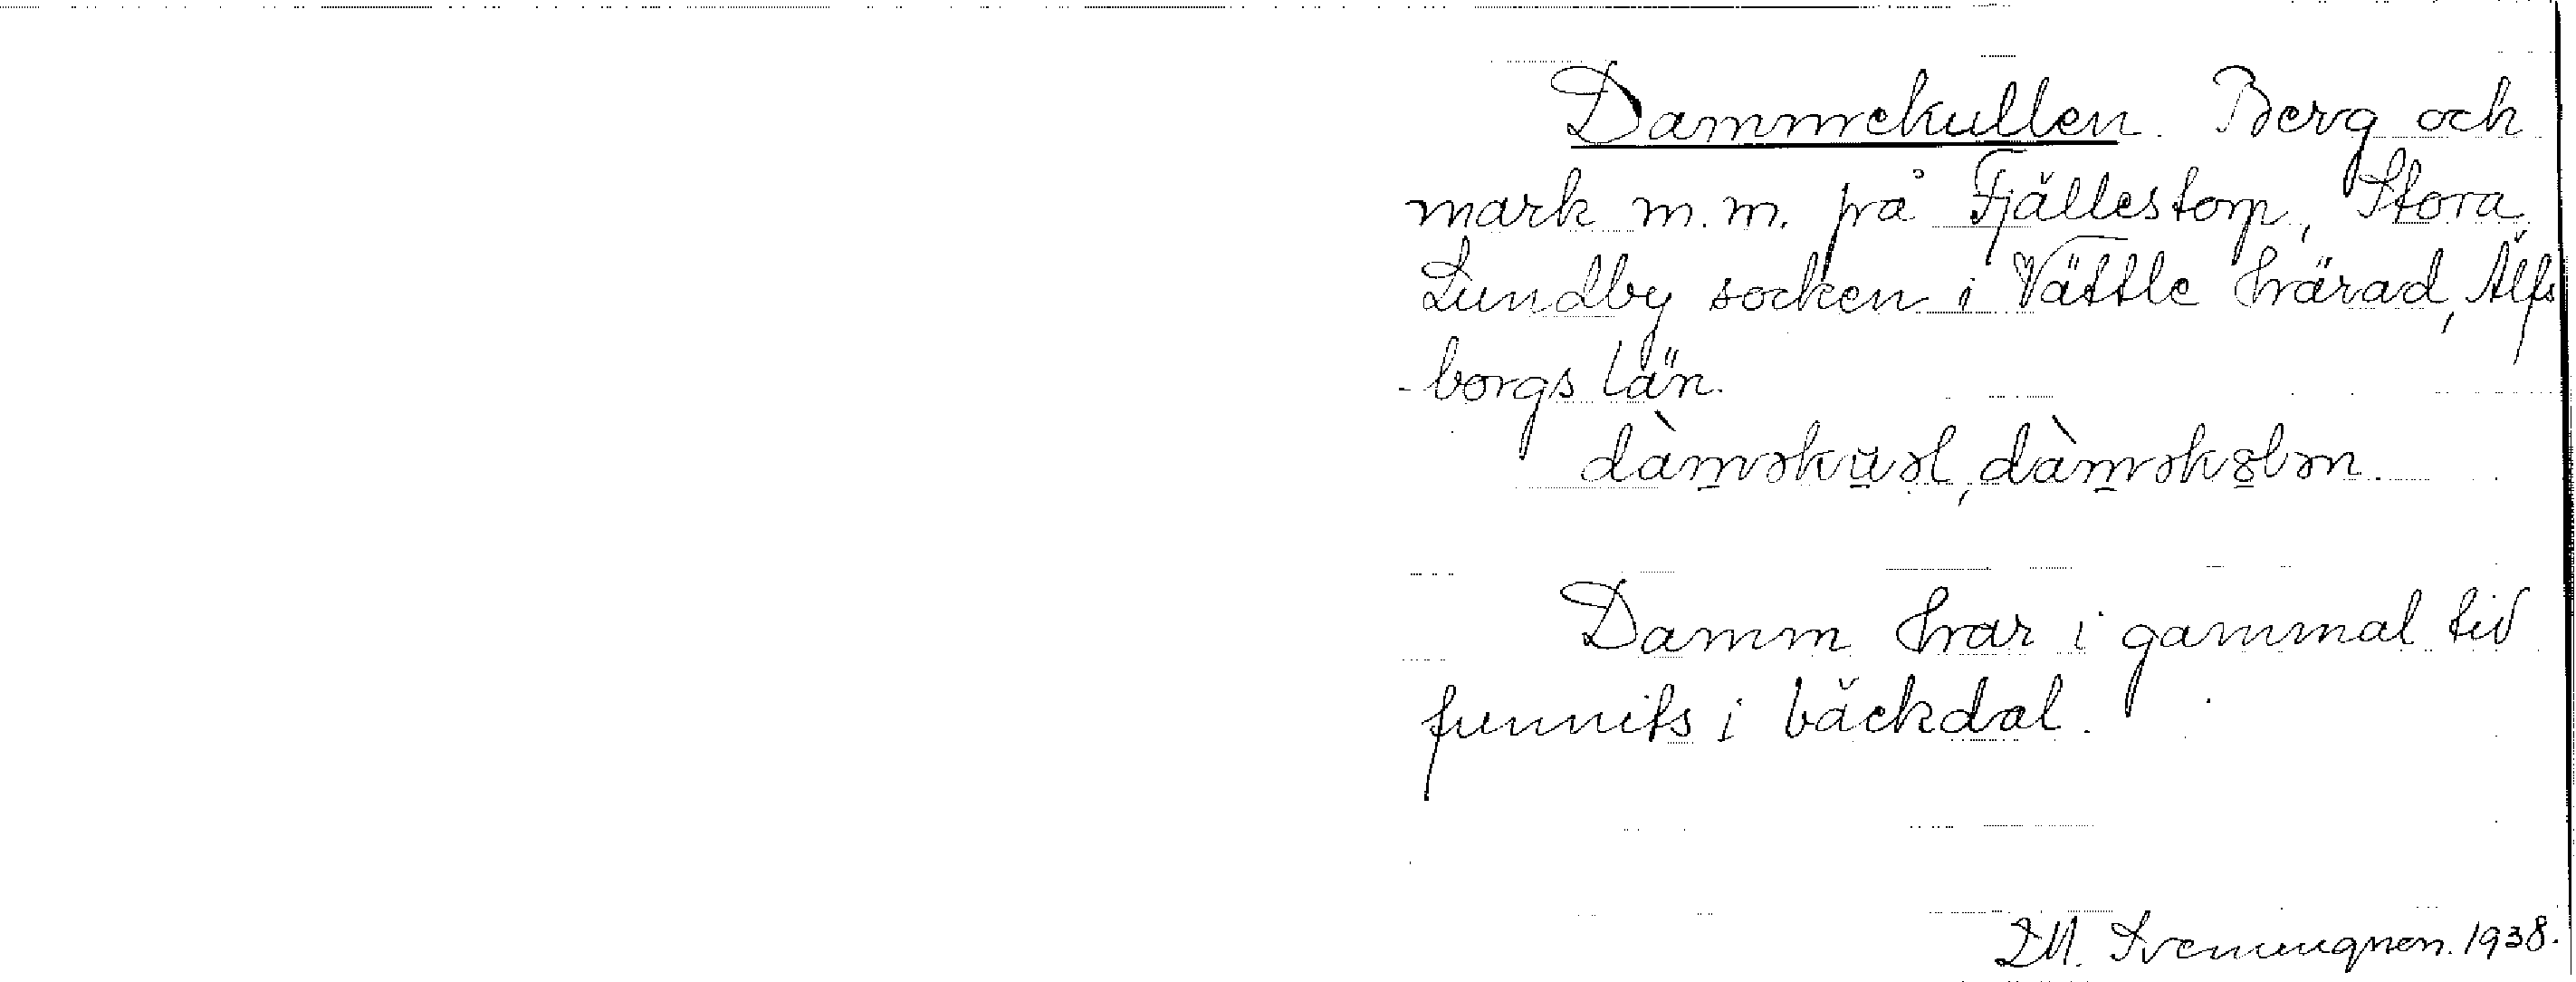 Dammekullen. Berg och
mark m.m. på Fjällestorp, Stora
Lundby socken i Vättle härad, Älfs
-borgs län.
dàm̲əku̲əl, dàm̲ək8̲lən.
Damm har i gammal tid
funnits i bäckdal.
1938.